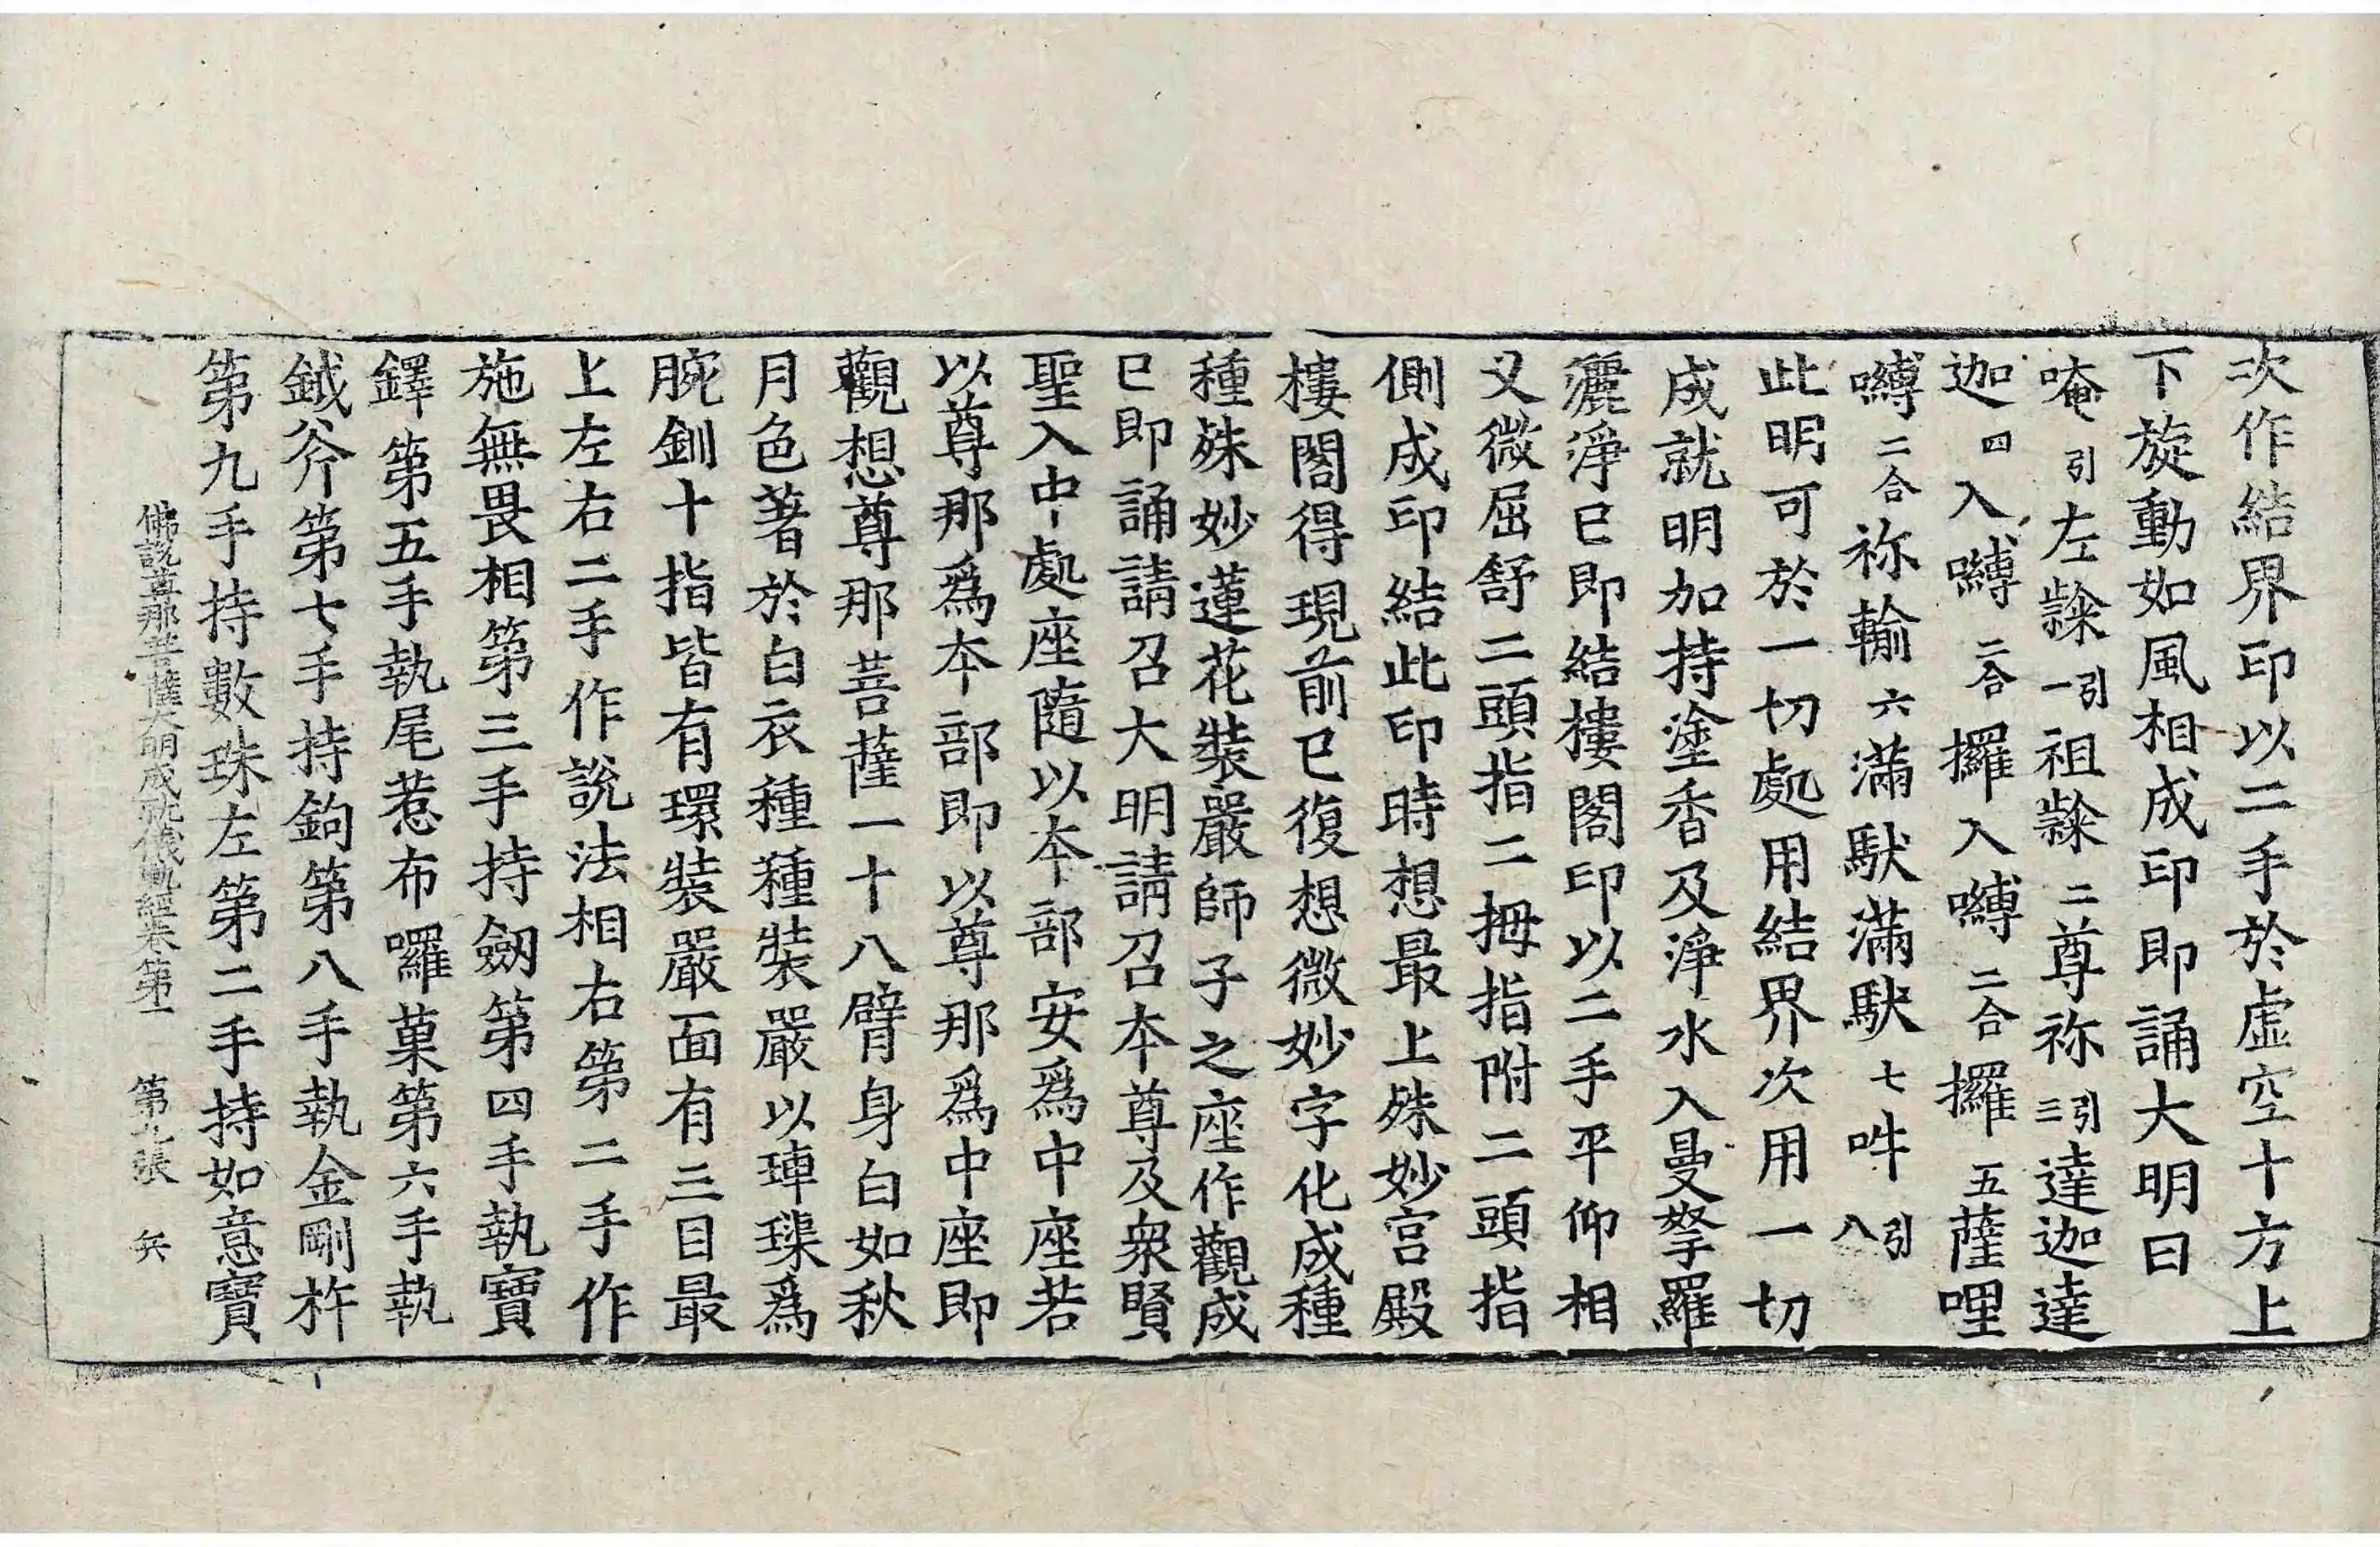 次作結界印以二手於虛空十方上
下旋動如風相成印即誦大明曰
唵引左𨽻引一祖𨽻二尊祢引三達迦達
迦四入嚩二合攞入嚩二合攞五薩哩
嚩二合祢輸六滿馱滿馱七吽引八
此明可於一切處用結界次用一切
成就明加持塗香及淨水入曼拏羅
灑淨已即結樓閣印以二手平仰相
叉微屈舒二頭指二拇指附二頭指
側成印結此印時想最上殊妙宮殿
樓閣得現前已復想微妙字化成種
種殊妙蓮花裝嚴師子之座作觀成
已即誦請召大明請召本尊及眾賢
聖入中處座隨以本部安爲中座若
以尊那爲本部即以尊那爲中座即
觀想尊那菩薩一十八臂身白如秋
月色著於白衣種種裝嚴以硨磲爲
腕釧十指皆有環裝嚴面有三目最
上左右二手作說法相右第二手作
施無畏相第三手持劒第四手執寶
鐸第五手執尾惹布囉菓第六手執
鉞斧第七手持鉤第八手執金剛杵
第九手持數珠左第二手持如意寶
佛說尊那菩薩大明成就儀軌經卷第一 第九張 兵